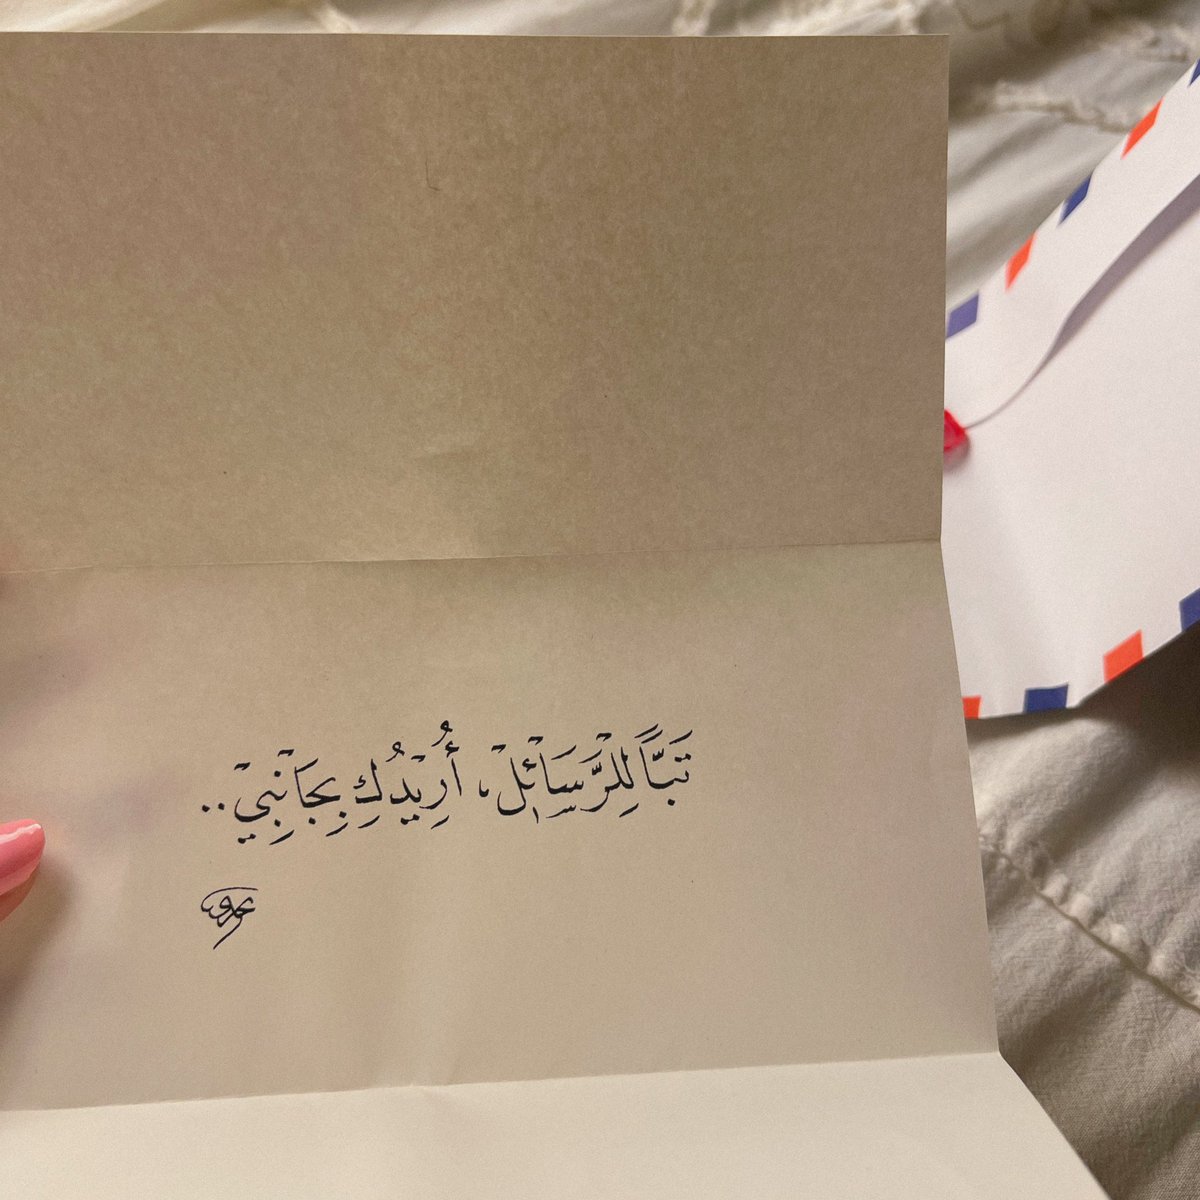 تَبًّا لِلْرَّسَائِلْ، أُرِيْدُكِ بِجَانْبِيْ..